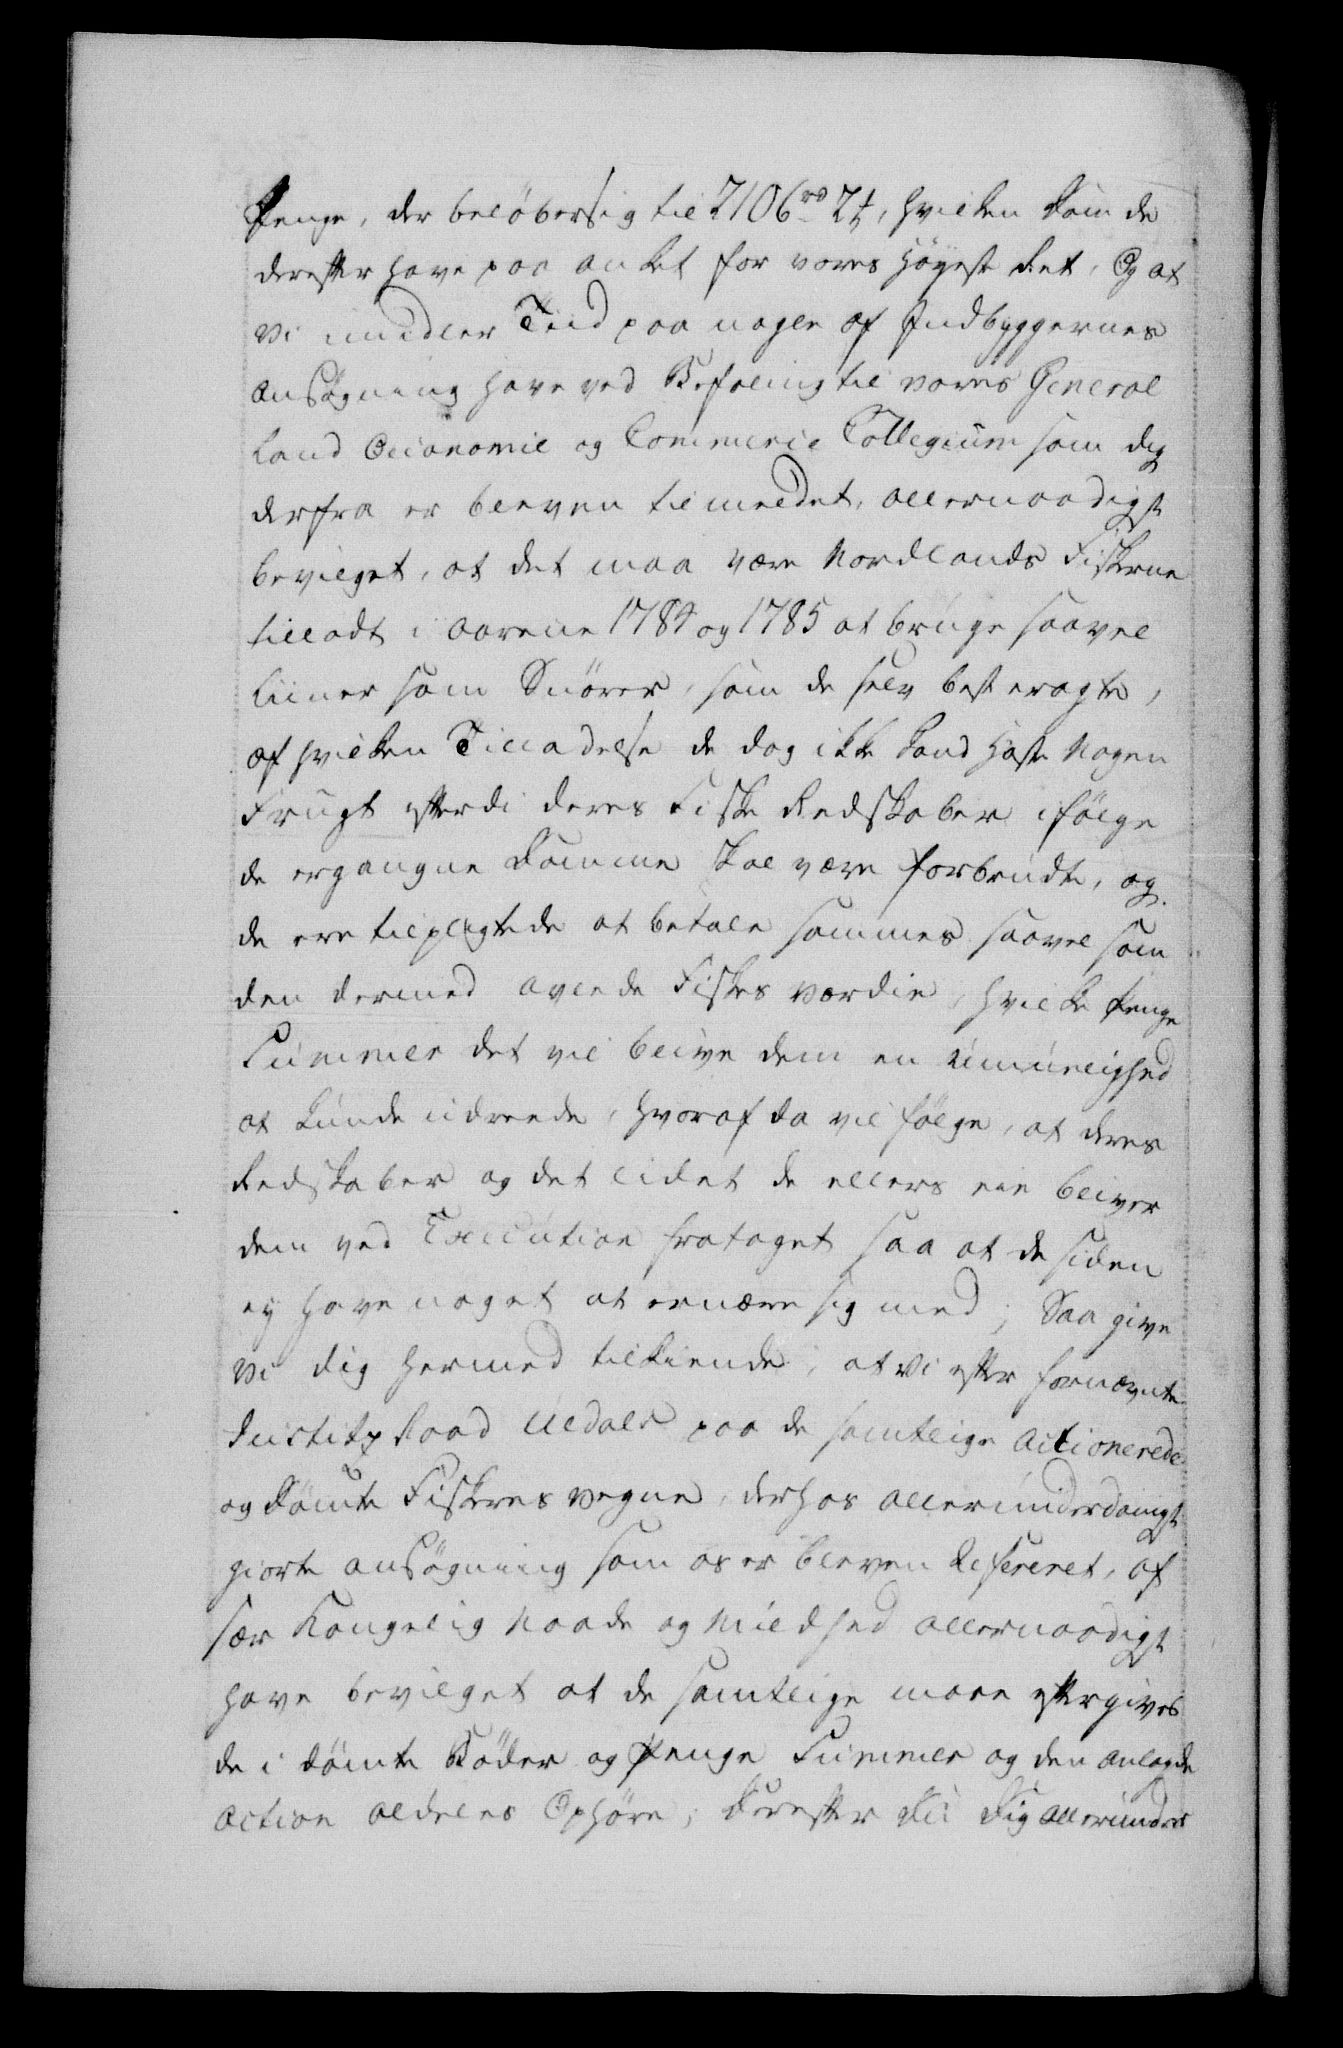 Penge, der beløber sig til 2106 rd 2 ₰, hvilken Dom de
derefter have paa anket for vores Høyeste Ret, Og at
Vi imidler Tiid paa nogle af Indbyggernes
Ansøgning have ved Befaling til vores General
Land Oeconomie og Commerce Collegium som dig
derfra er bleven tilmeldet, allernaadigst
bevilget, at det maa være Nordlands Fiskerne
tilladt i Aarene 1784 og 1785 at bruge saavel
Liiner som Snører, som de selv best eragte,
af hvilken Tilladelse de dog ikke kand høste Nogen
Frugt efterdi deres Fiske Redskaber ifølge
de ergangne Domme skal være forbrudte, og
de ere tilpligtede at betale sammes saavel som
den dermed avlede Fiskes Værdie, hvilke Penge
Summer det vil blive dem en Umuelighed
at kunde udreede, hvoraf da vil følge, at deres
Redskaber og det lidet de ellers eie bliver
dem ved Execution frataget saa at de siden
ey have noget at ernære sig med; Saa give
Vi dig hermed tilkiende, at Vi efter fornævnte
Justitz Raad Uldals paa de samtlige Actionerede
og dømte Fiskeres vegne, derhos allerunderdanigst
giorte Ansøgning som os er bleven Refereret, af
sær Kongelig Naade og Mildhed allernaadigst
have bevilget at de samtlige maae eftergives
de idømte Bøder og Penge Summer og den anlagde
Action aldeles Ophøre; Derefter Du Dig allerunder